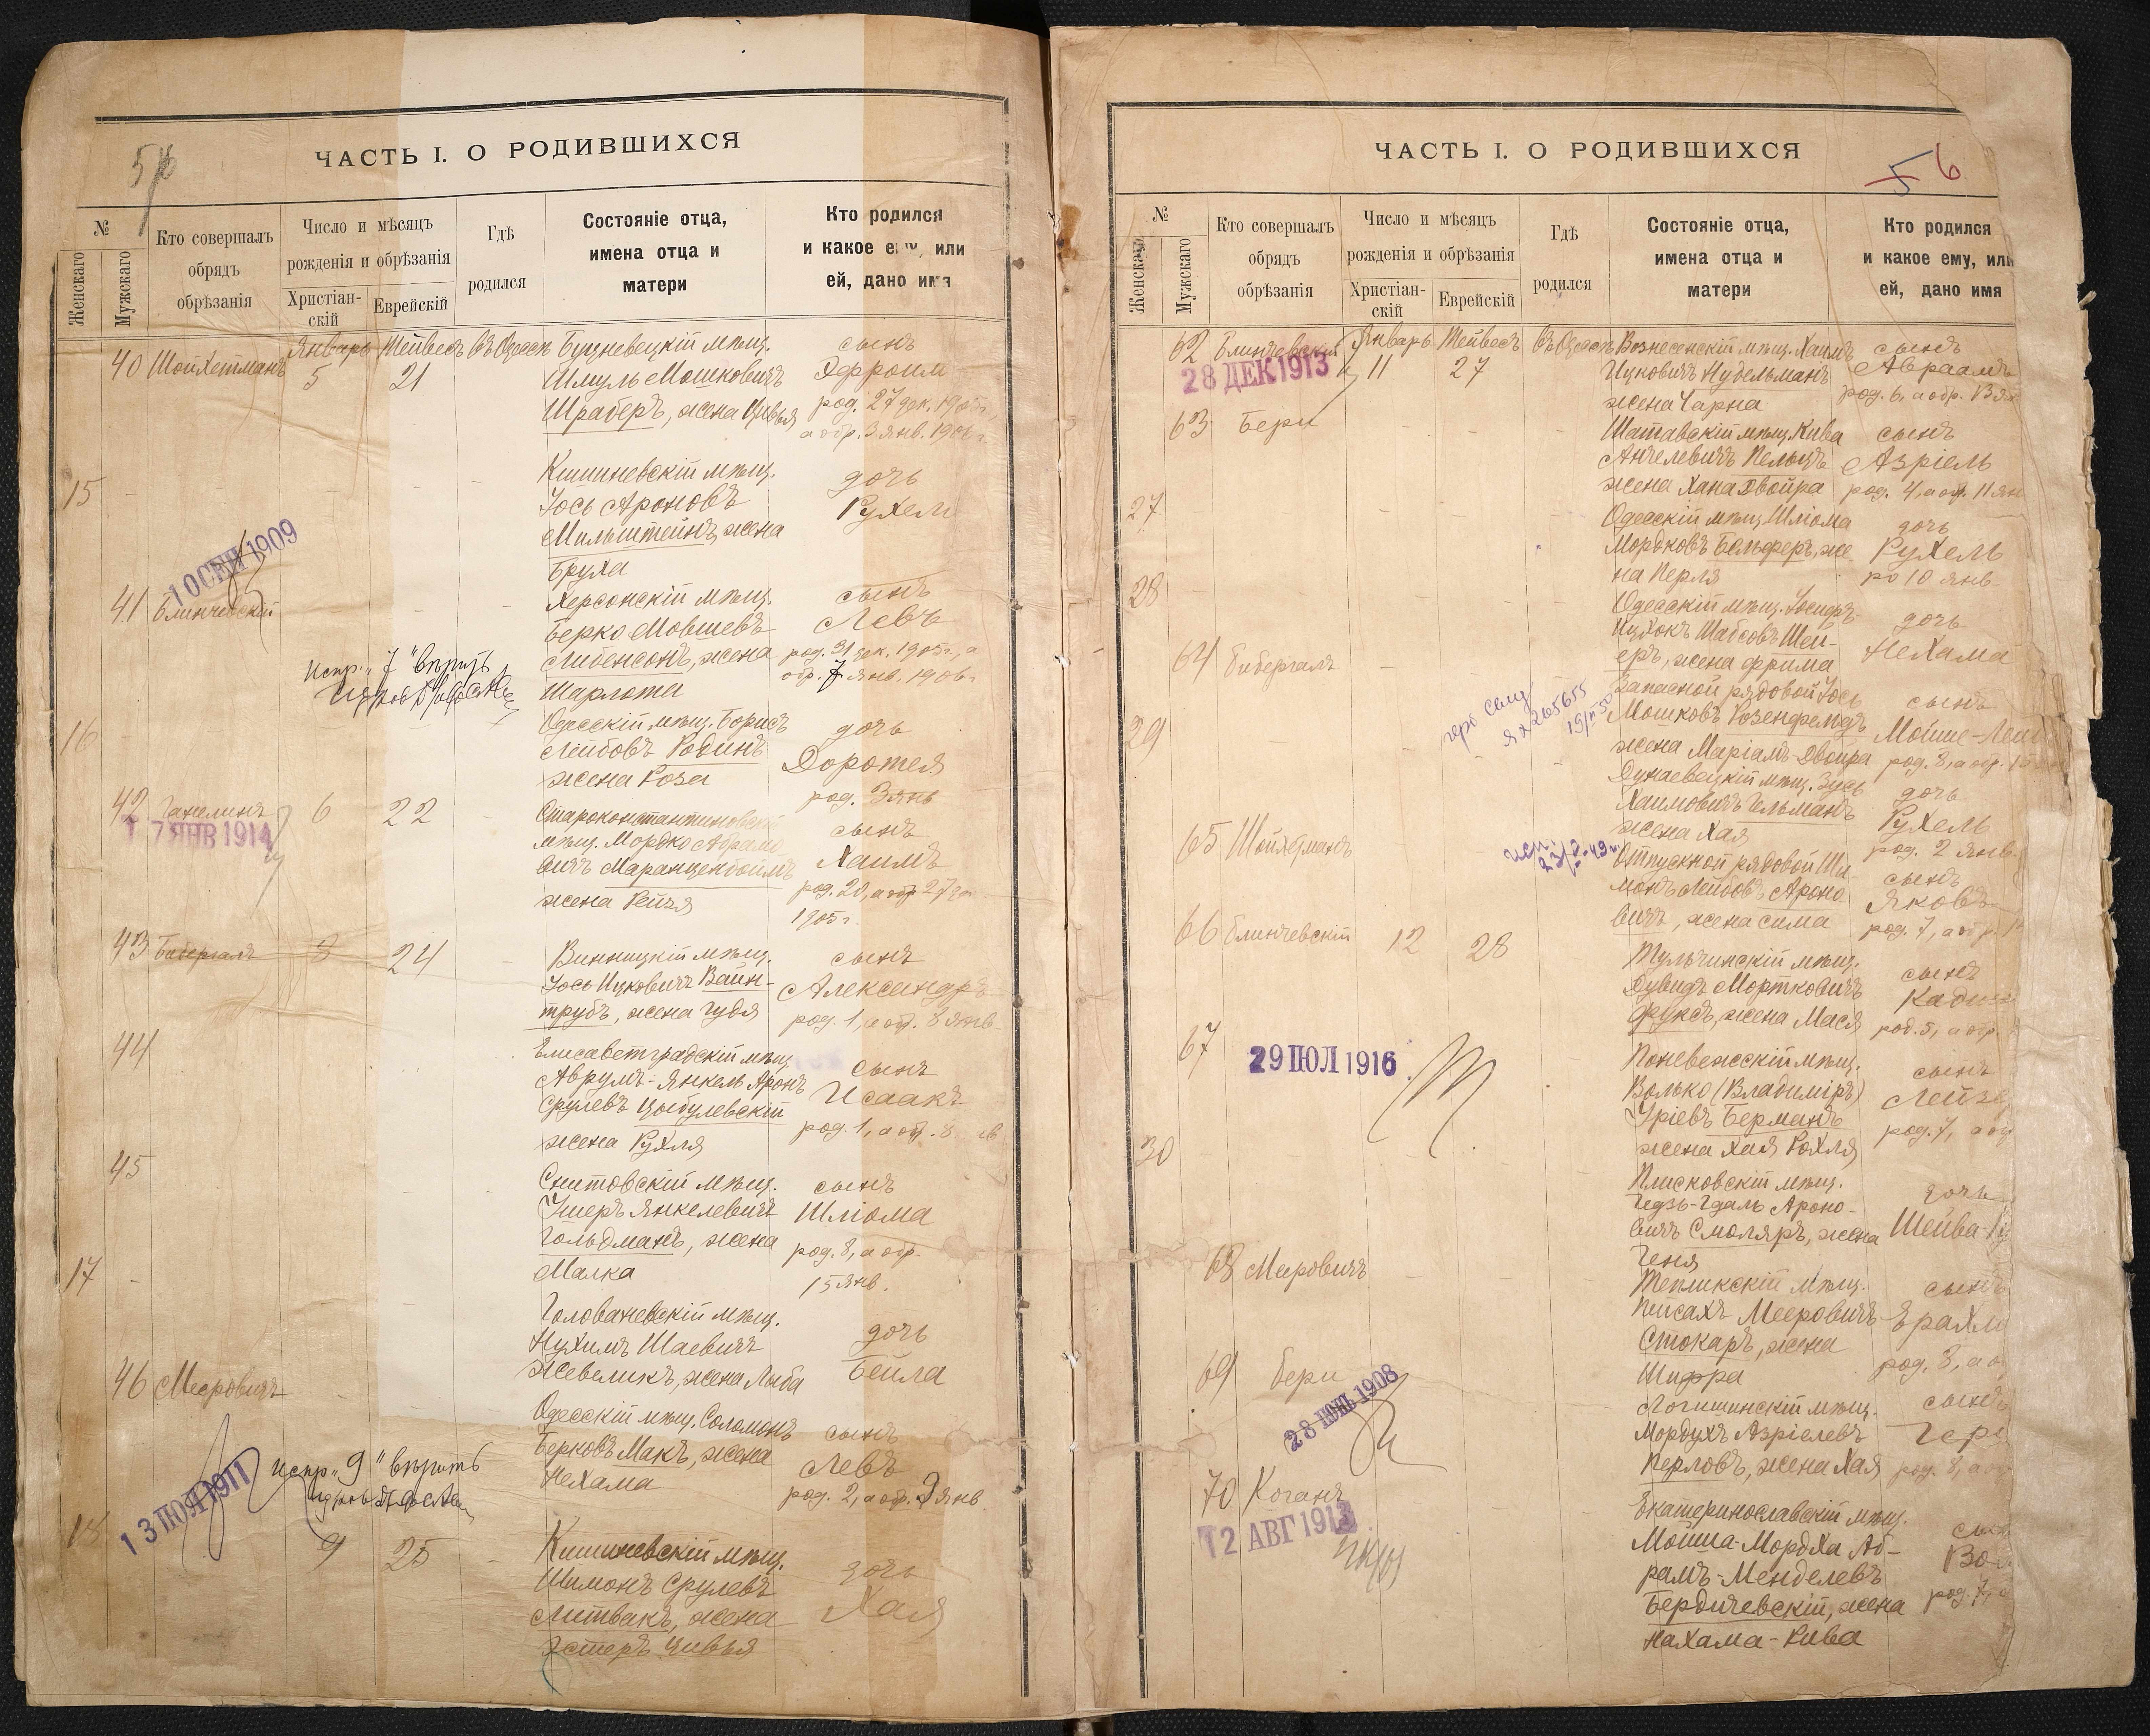 5
ЧАСТЬ I. О РОДИВШИХСЯ
№
Женскаго
Мужскаго
Кто совершалъ
обрядъ
обрѣзанія
Число и мѣсяцъ
рожденія и обрѣзанія
Христіан-
скій
Еврейскій
Гдѣ
родился
Состояніе отца,
имена отца и
матери
Кто родился
и какое ему, или
ей, дано имя
40 Шойхетманъ Январь 5 Тейвесъ 21 Въ Одессѣ
мѣщ.
Шмуль Мошковичъ
Шраберъ, жена Цивья
сынъ
Эфроим
род. 27 дек. 1905 г.
а обр. 3 янв. 1906 г.
15
Кишиневскій мѣщ.
Іось Ароновъ
Мильштейнъ, жена
Бруха
дочь
Рухель
10 СЕН 1909
41 Блинчевскій
Херсонскій мѣщ.
Берко Мовшевъ
Либенсонъ, жена
Шарлота
сынъ
Левъ
род. 31 дек. 1905 г., а
обр. 7 янв. 1906 г.
Испр. „7" вѣрить
16
Одесскій мѣщ. Борисъ
Лейбовъ Родинъ
жена Роза
дочь
Доротея
род. 3 янв
42 Ганелинъ 6 22
7 ЯНВ 1914
Староконстантиновскій
мѣщ. Мордко Абрамо
вичъ Маранценбоймъ
жена Рейзя
сынъ
Хаимъ
род. 20, а обр. 27 дек.
1905 г.
43 Бибергалъ 8 24
Винницкій мѣщ.
Іось Ицковичъ Вайн-
трубъ, жена Гудя
сынъ
Александръ
род. 1, а обр. 8 янв
44
Елисаветградскій мѣщ.
Аврумъ-Янкель Аронъ
Срулевъ Цыбулевскій
жена Рухля
сынъ
Исаакъ
род. 1, а обр. 8
45
Снитовскій мѣщ.
Ушеръ Янкелевичъ
Гольдманъ, жена
Малка
сынъ
Шліома
род. 8, а обр.
15 янв.
17
Голованевскій мѣщ.
Нухимъ Шаевичъ
Жевеликъ, жена Лыба
дочь
Бейла
46 Мееровичъ
Одесскій мѣщ. Соломонъ
Берковъ Макъ, жена
Нехама
сынъ
Левъ
род. 2, а обр. 9 янв.
Испр. „9" вѣрить
13 1911
18 9 25
Кишиневскій мѣщ.
Шимонъ Срулевъ
Литвакъ, жена
Эстеръ Цивья
дочь
Хая
ЧАСТЬ I. О РОДИВШИХСЯ
5 6
№
Женскаго
Мужскаго
Кто совершалъ
обрядъ
обрѣзанія
Число и мѣсяцъ
рожденія и обрѣзанія
Христіан-
скій
Еврейскій
Гдѣ
родился
Состояніе отца,
имена отца и
матери
Кто родился
и какое ему, или
ей, дано имя
62 Блинчевскій Январь 11 Тейвесъ 27 Въ Одессѣ
28 ДЕК 1913
Вознесенскій мѣщ. Хаимъ
Ицковичъ Нудельманъ
жена Чарна
сынъ
Авраамъ
род. 6, а обр. 13 ян
63 Бери
Шатавскій мѣщ. Кива
Анчелевичъ Пельцъ
жена Хана Двойра
сынъ
Азріель
род. 4, а обр. 11 ян
27
Одесскій мѣщ. Шліома
Мордковъ Бельферъ, же
на Перля
дочь
Рухель
ро 10 янв
28
Одесскій мѣщ. Іосифъ-
Ицхокъ Шабсовъ Шей-
еръ, жена Фрима
дочь
Нехама
64 Бибергалъ
Запасной рядовой Іось
Мошковъ Розенфельдъ
жена Маріамъ-Двойра
сынъ
Мойше-Лей
род. 8, а обр. 15
29
Дунаевецкій мѣщ. Зусь
Хаимовичъ Гельманъ
жена Хая
дочь
Рухель
род. 2 янв.
65 Шойхетманъ
Отпускной рядовой Ши
монъ Лейбовъ Ароно
вичъ, жена Сима
сынъ
Яковъ
род. 7, а обр. 1
66 Блинчевскій 12 28
Тульчинскій мѣщ.
Дувидъ Мортковичъ
Фуксъ, жена Мася
сынъ
род. 5, а обр.
67
29 ІЮЛ 1916
Поневежскій мѣщ.
Волько (Владиміръ)
Уріевъ Берманъ
жена Хая Рохля
сынъ
Лейзе
род. 7, а об
30
Плисковскій мѣщ.
Гедзь-Гдаль Ароно-
вичъ Смоляръ, жена
Геня
дочь
Шейва-
68 Мееровичъ
Тепликскій мѣщ.
Пейсахъ Мееровичъ
Стокаръ, жена
Шифра
сынъ
Ерахми
род. 8, а о
69 Бери
28 1908
Логишинскій мѣщ.
Мордухъ Азріелевъ
Перловъ, жена Хая
сынъ
Гер
род. 8, а о
70 Коганъ
12 АВГ 1913
Екатеринославскій мѣщ.
Мойша-Мордха Аб-
рамъ-Менделевъ
Бердичевскій, жена
Нахама-Рива
сын
Во
род. 7, а